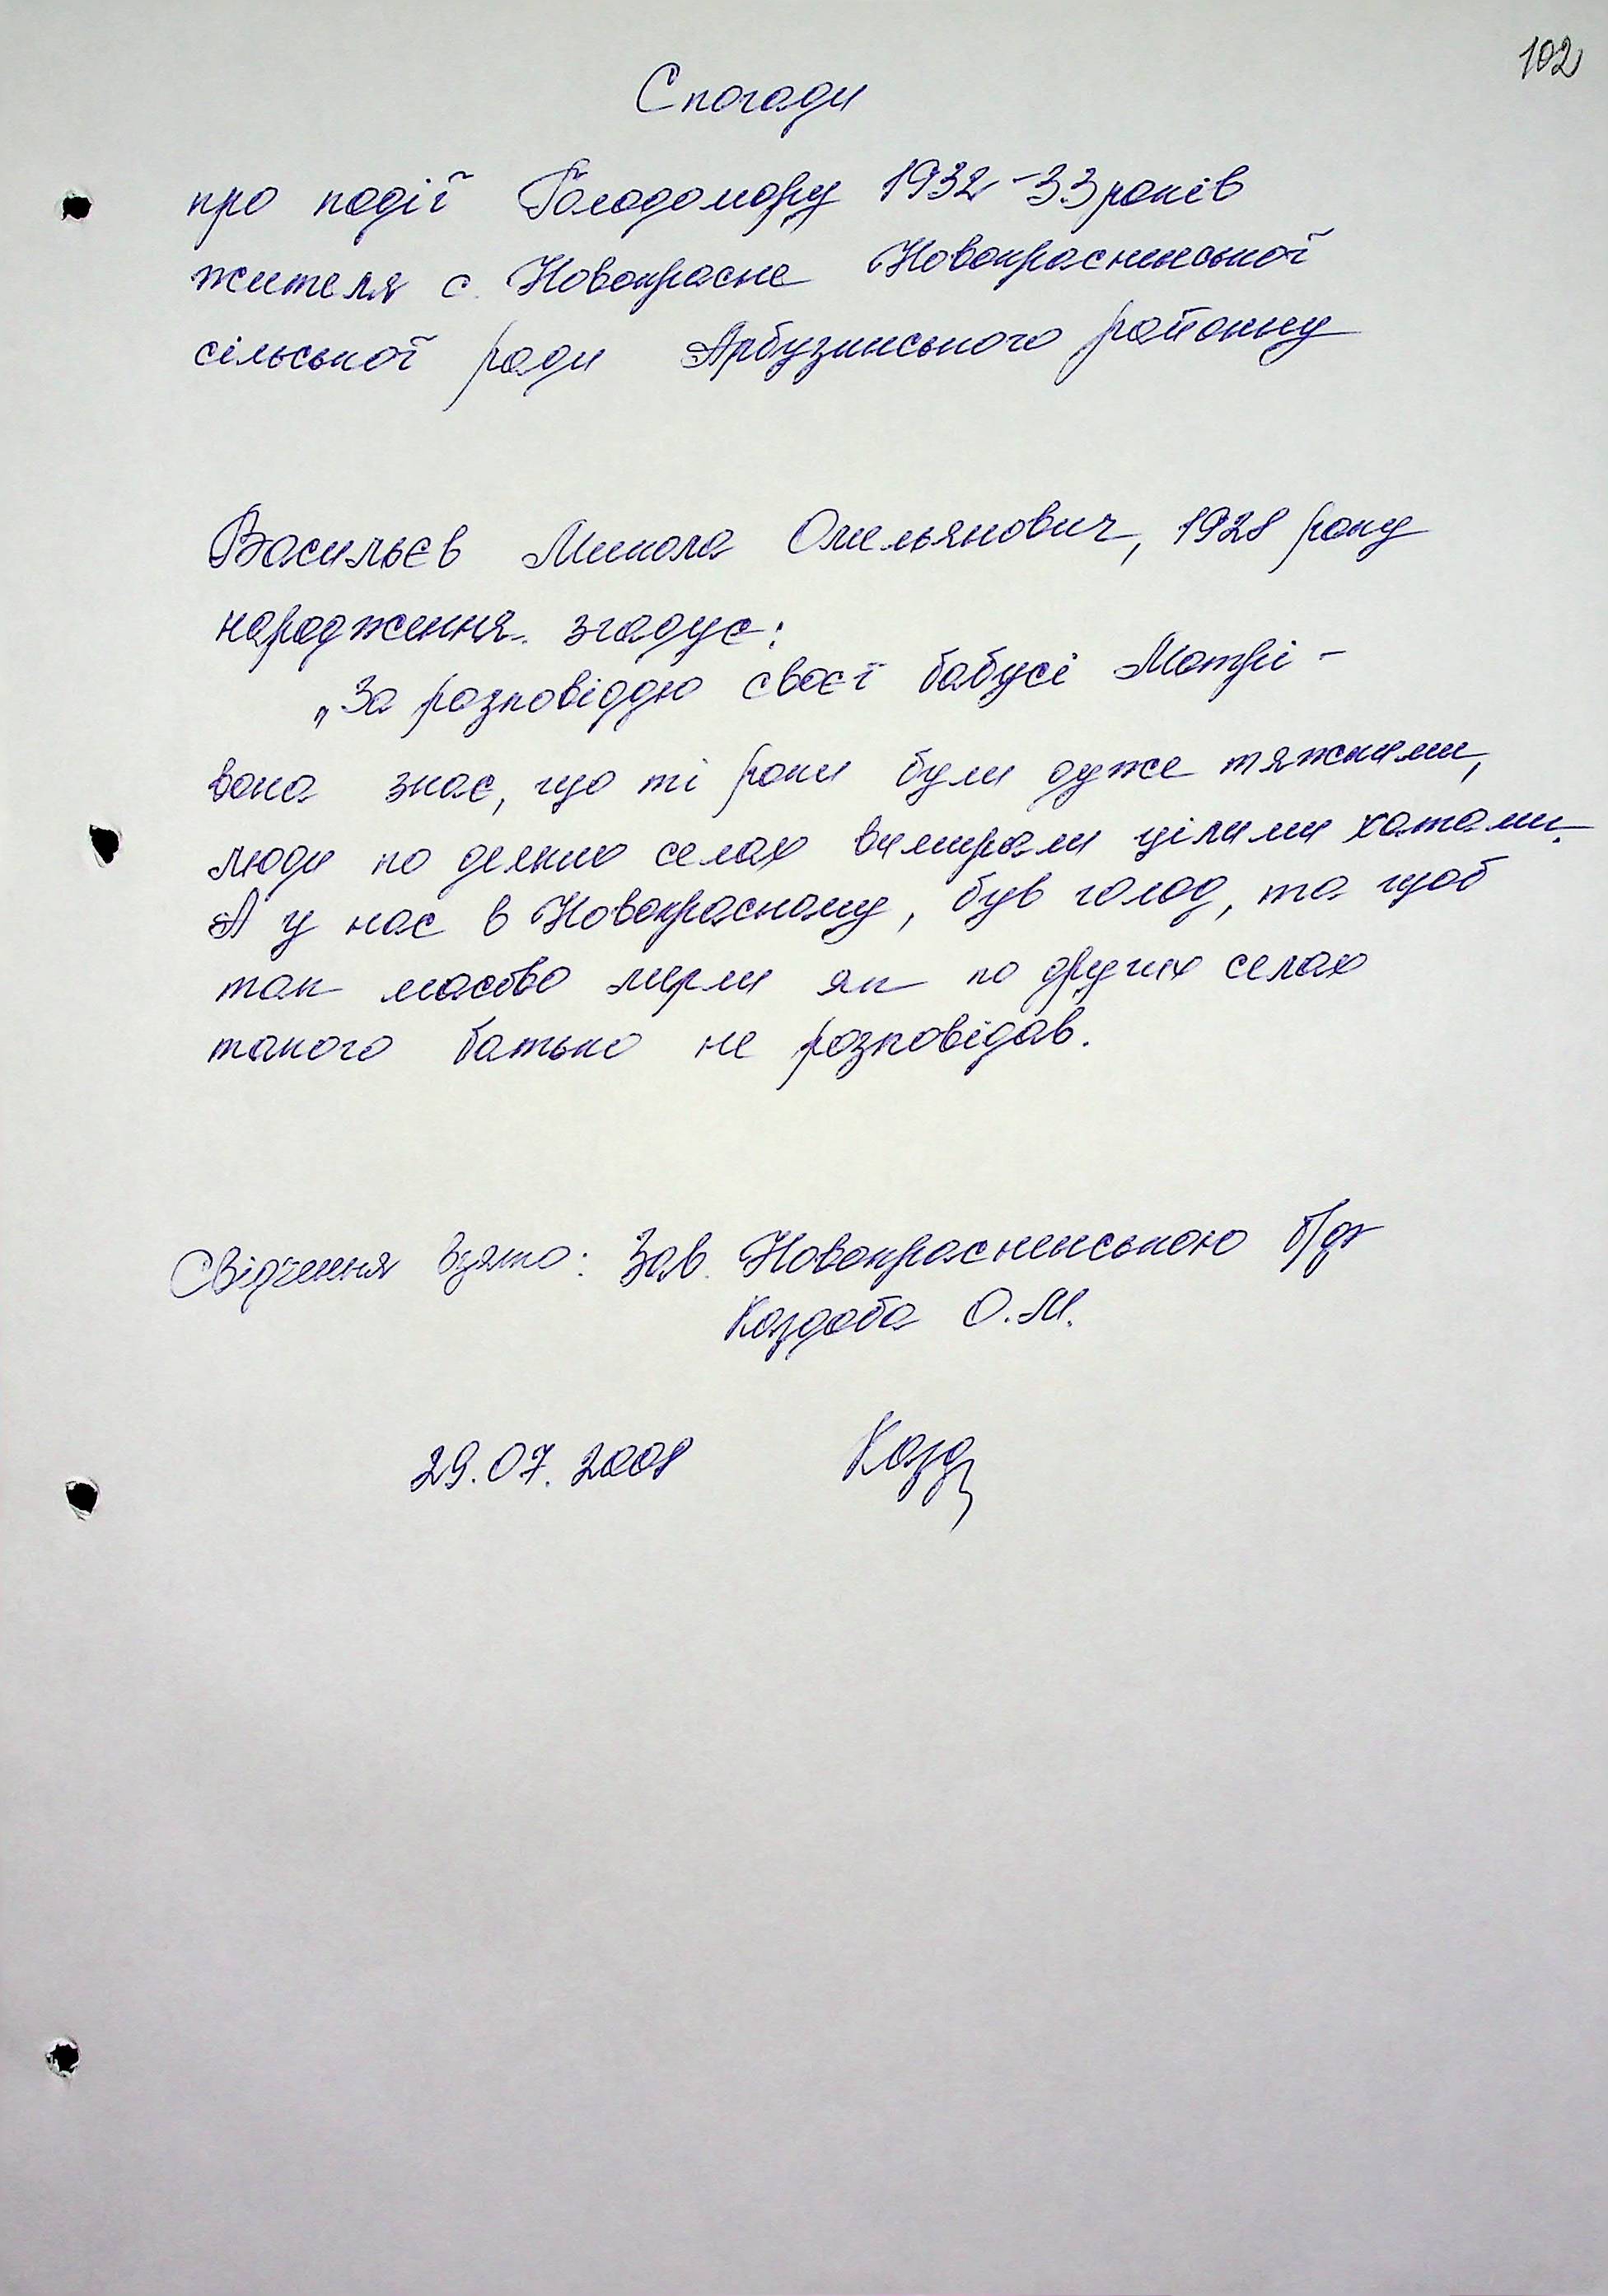 102
Спогади
про події Голодомору 1932-33 років
жителя с. Новокрасне Новокрасненської
сільської ради Арбузинського району
Васильєв Микола Омельянович, 1928 року
народження згадує:
„За розповіддю своєї бабусі Мотрі -
вона знає, що ті роки були дуже тяжкими,
люди по деяких селах вимирали цілими хатами.
А у нас в Новокрасному, був голод, та щоб
так масово мерли як по других селах
такого батько не розповідав.
Свідчення взято: Зав. Новокрасненською б/ф
Каздоба О.М.
29.07.2008 Казд